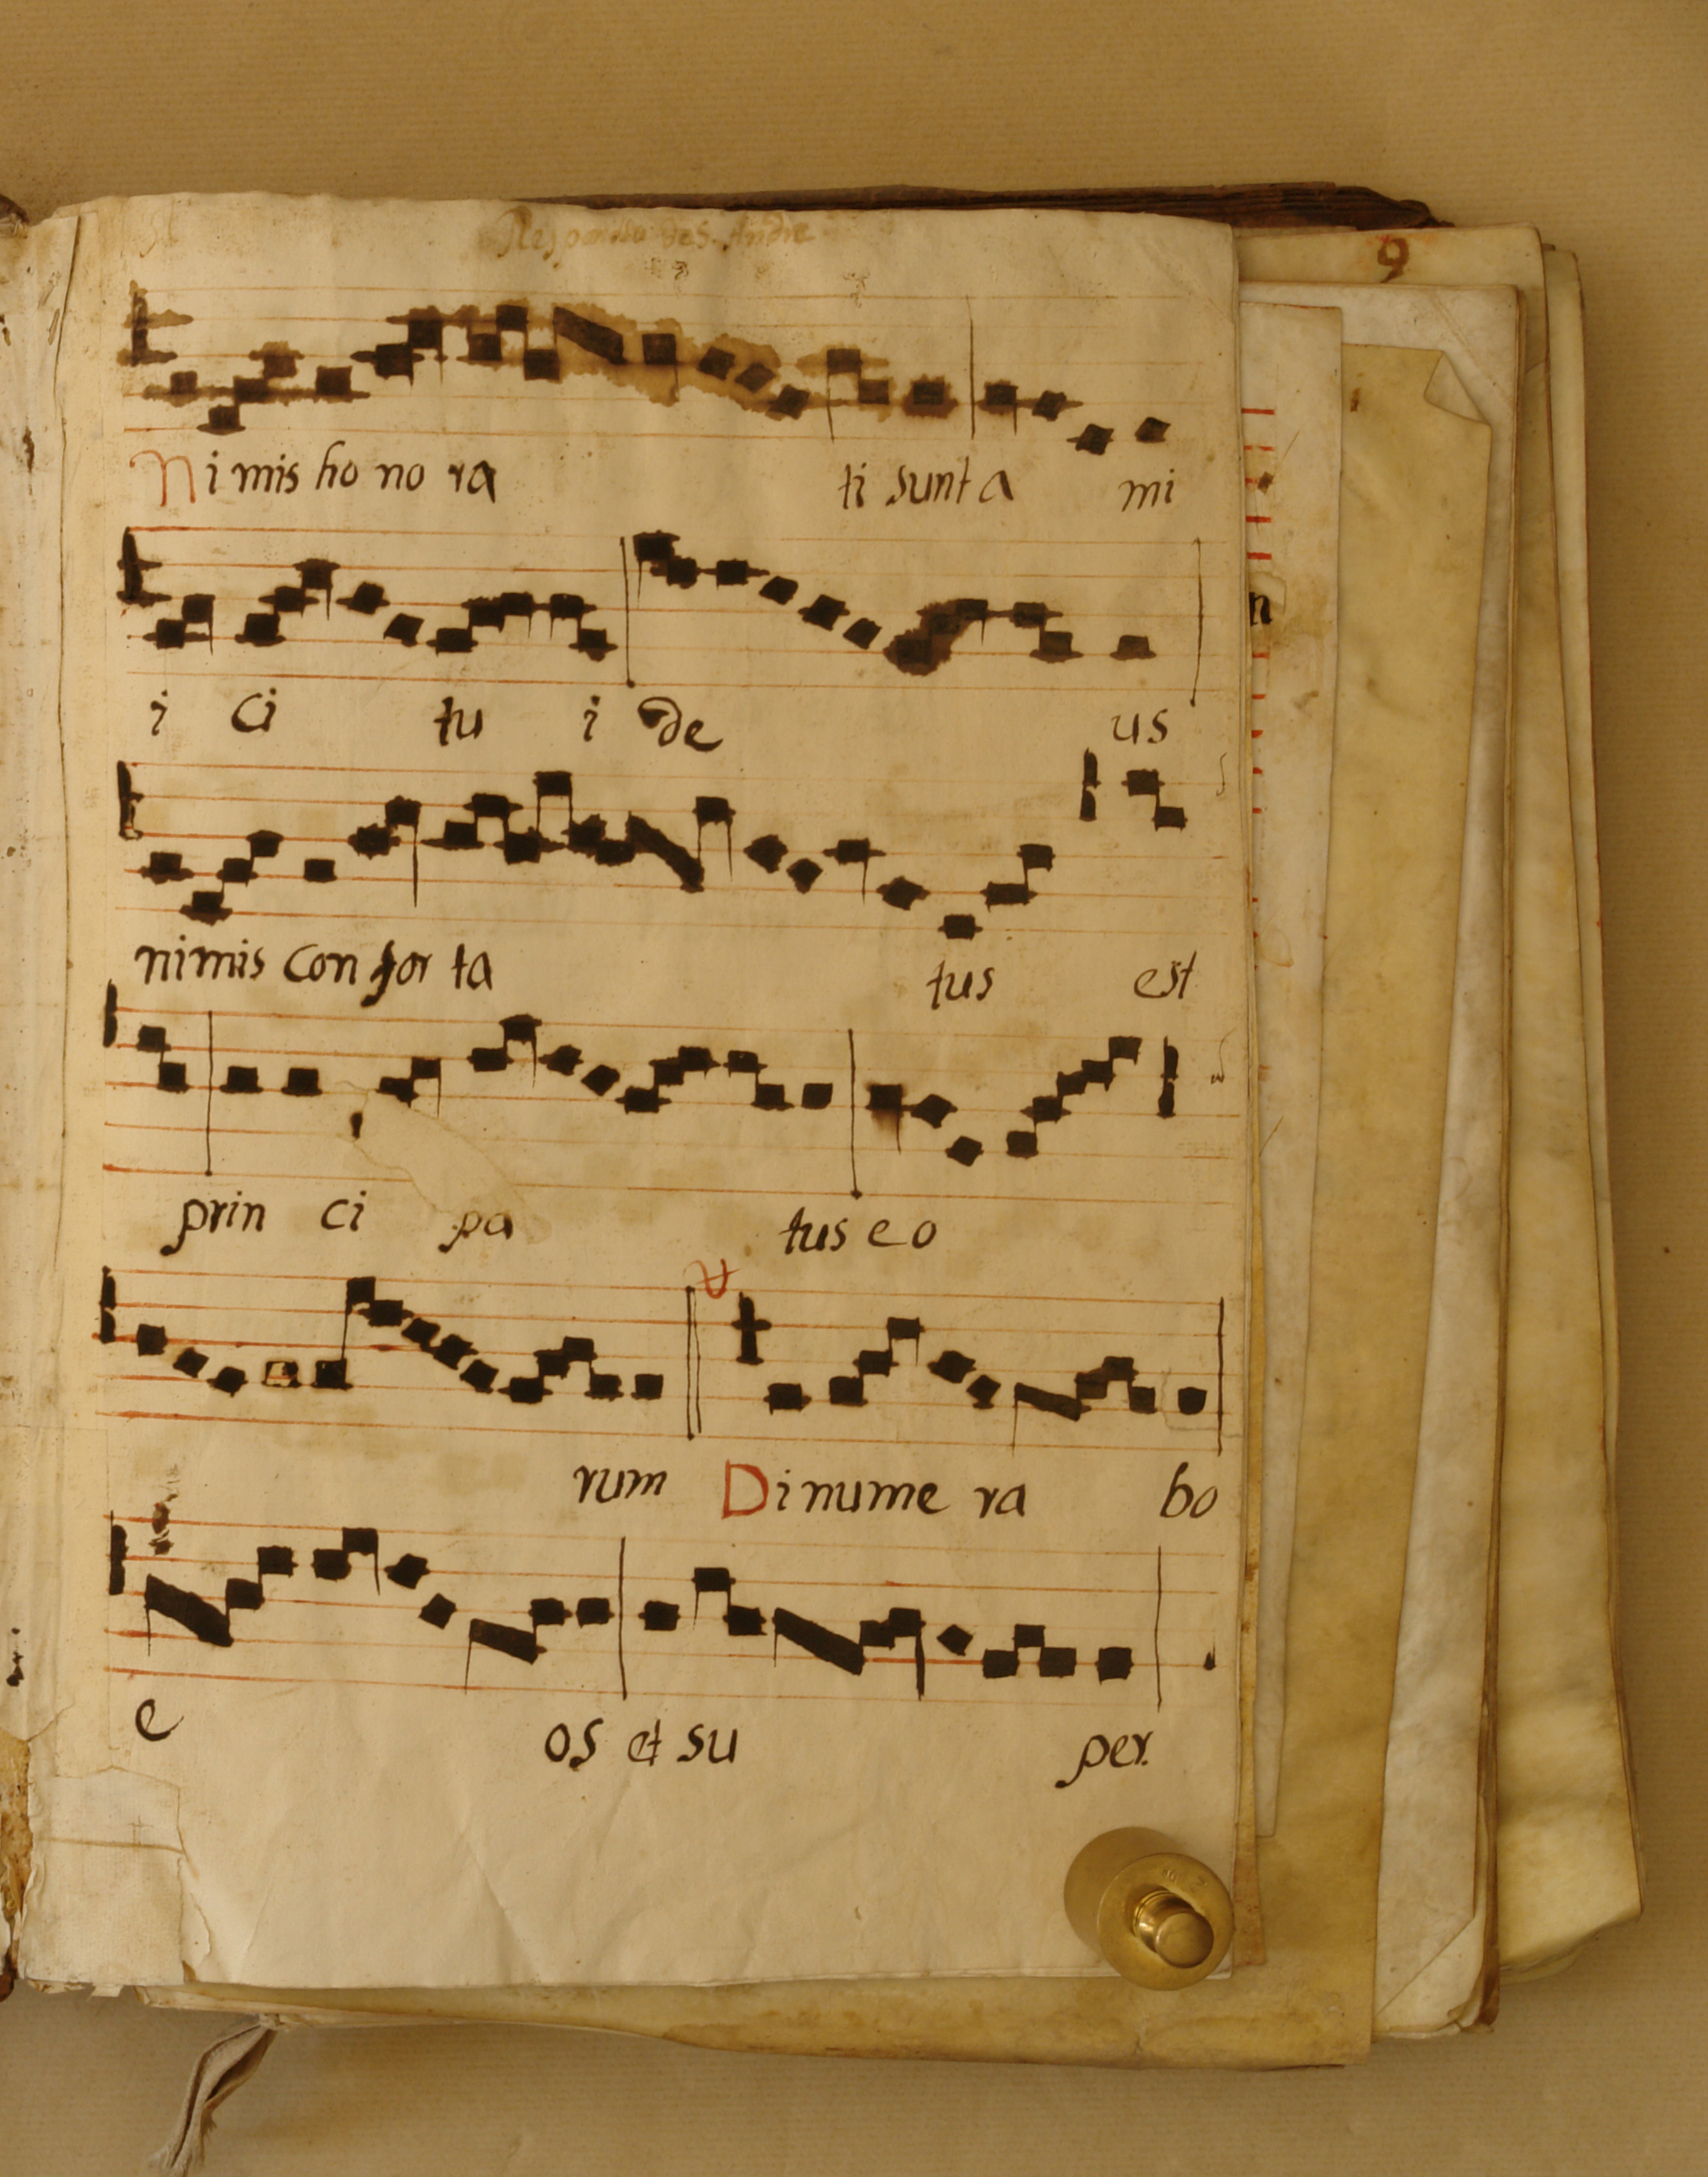 de S. Andre
9
Nimis ho no ra ti sunt a mi
i ci tu i de us
n
nimis con for ta tus est
prin ci pa tus e o
rum ℣ Dinume ra bo
e os et su per